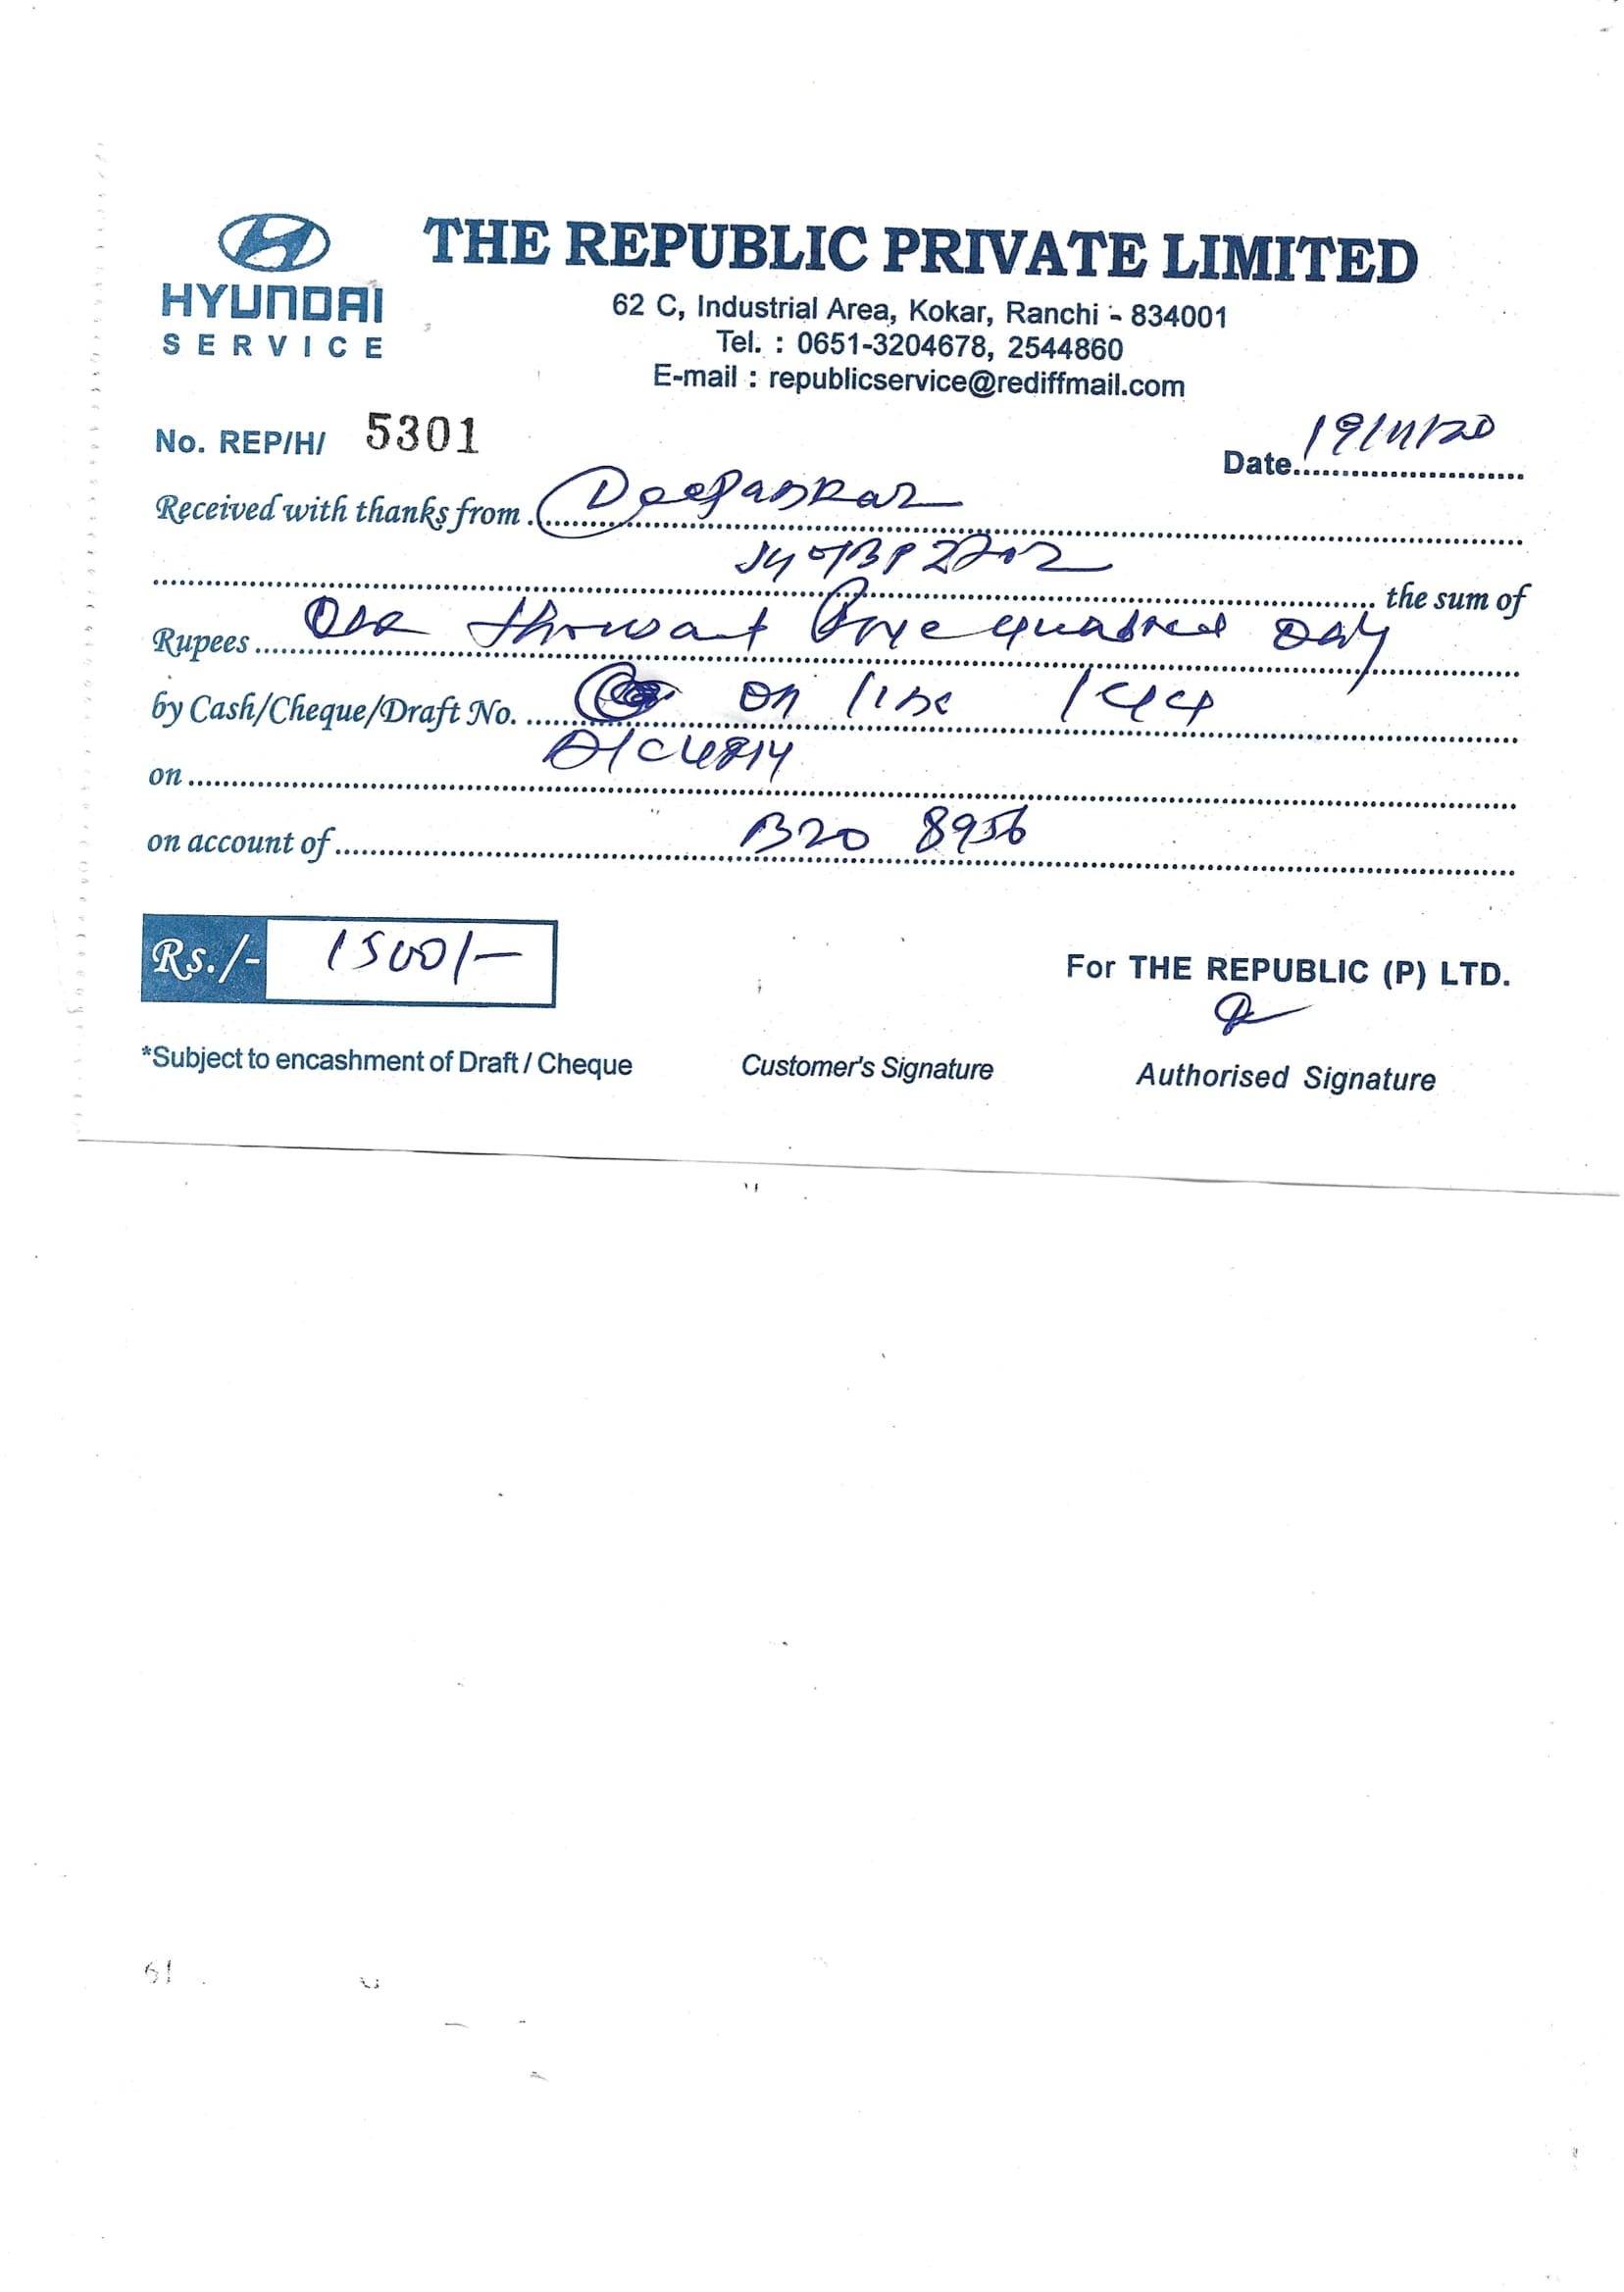 HYUNDAI
SERVICE
THE REPUBLIC PRIVATE LIMITED
62 C, Industrial Area, Kokar, Ranchi - 834001
Tel. : 0651-3204678, 2544860
E-mail : republicservice@rediffmail.com
No. REP/H/ 5301
Date 19/11/20
Received with thanks from
the sum of
Rupees One thousant Five
by Cash/Cheque/Draft No. on line
on
on account of B20 8956
Rs./- 1500/-
For THE REPUBLIC (P) LTD.
*Subject to encashment of Draft / Cheque Customer's Signature Authorised Signature